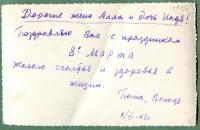 Дорогие жена Алла и дочь Надя!
Поздравляю Вас с праздником
8º Марта
Желаю счастья и здоровья в
жизни.
Папа, Володя